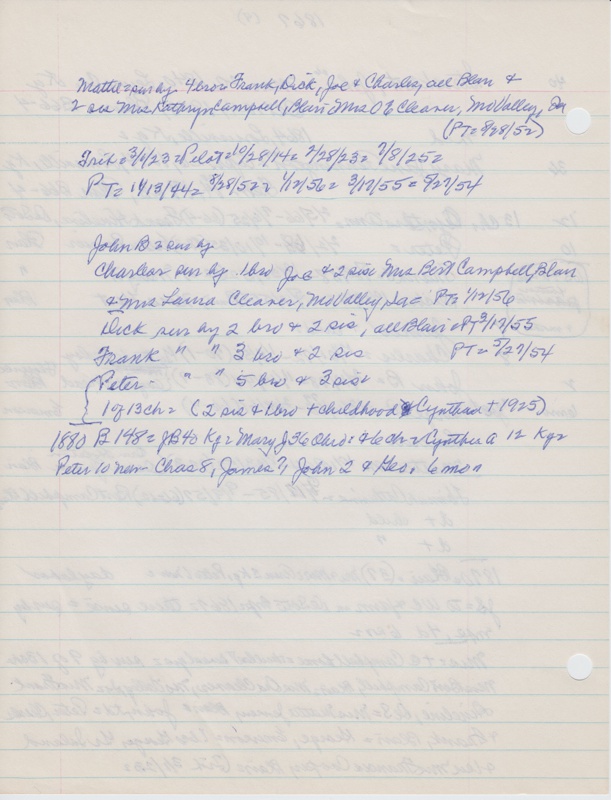 Mattie = sur by 4 bro = Frank, Dick, Joe & Charles, all Blair &
2 sis Mrs Kathryn Campbell, Blair & Mrs O E Cleaver, Mo Valley, Ia
(PT = 8/28/52)
Trib = 3/1/23 = Pilot = 10/28/14 = 2/28/23 = 7/8/25 =
PT = 11/13/44 = 8/28/52 = 1/12/56 = 3/17/55 = 5/27/54
John B = sur by
Charles = sur by 1 bro Joe & 2 sis Mrs Bert Campbell, Blair
& Mrs Laura Cleaver, Mo Valley, Ia = PT = 1/12/56
Dick sur by 2 bro & 2 sis, all Blair = PT 3/17/55
Frank " " 3 bro & 2 sis PT = 5/27/54
Peter - " " 5 bro & 3 sis =
1 of 13 ch = (2 sis & 1 bro + childhood & Cynthia + 1925)
1880 B 148 = JB 40 Ky = Mary J 36 Ohio = & 6 ch = Cynthia A 12 Ky =
Peter 10 new Chas 8, James 7, John 2 & Geo. 6 mon